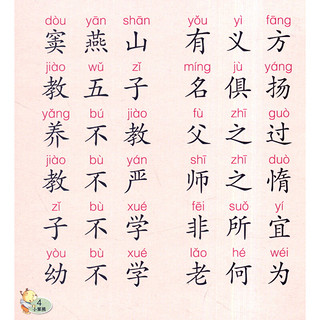 dòu yān shān yǒu yì fāng
窦燕山 有义方
jiào wǔ zǐ míng jù yáng
教五子 名俱扬
yǎng bú jiào fù zhī guò
养不教 父之过
jiào bù yán shī zhī duò
教不严 师之惰
zǐ bù xué fēi suǒ yí
子不学 非所宜
yòu bù xué lǎo hé wéi
幼不学 老何为
4